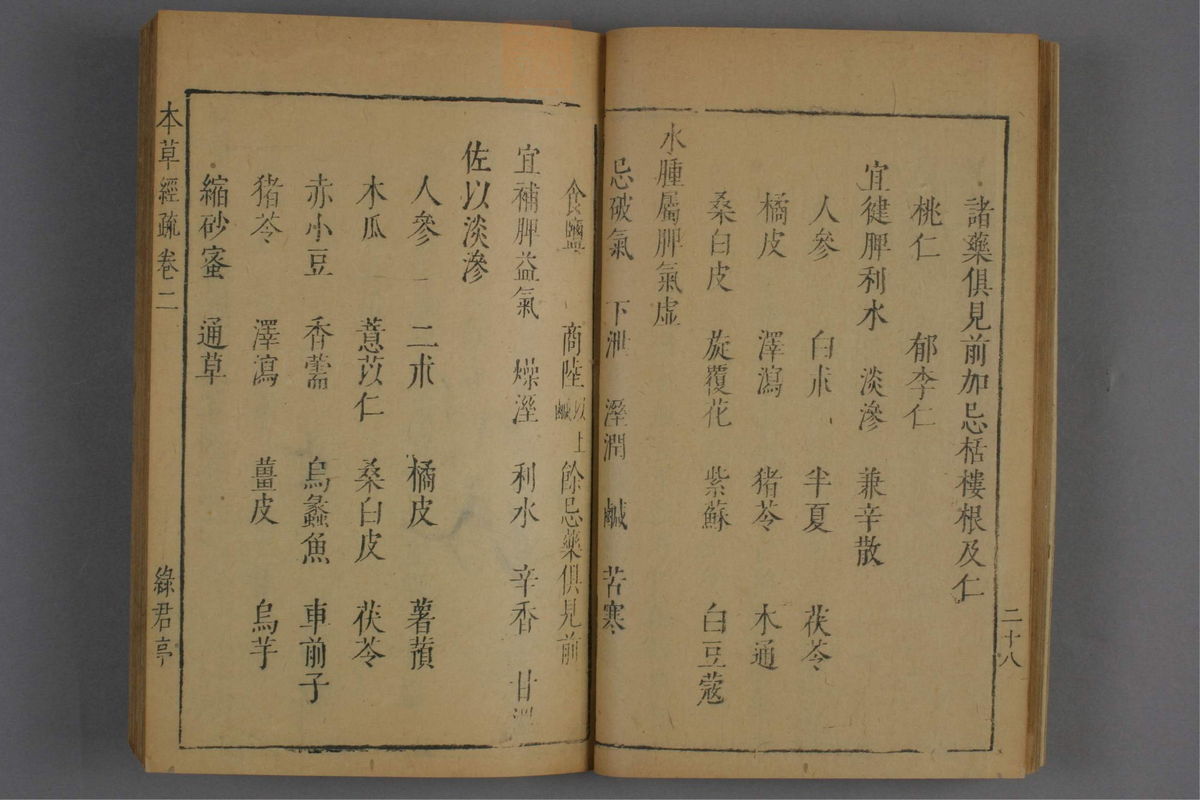 諸藥俱見前加忌栝樓根及仁
桃仁 郁李仁
宜健脾利水 淡滲 兼辛散
人參 白朮 半夏 茯苓
橘皮 澤瀉 猪苓 木通
桑白皮 旋覆花 紫蘇 白豆蔻
水腫屬脾氣虛
忌破氣 下泄 溼潤 鹹 苦寒
二十八
食鹽 商陸以上鹹 餘忌藥俱見前
宜補脾益氣 燥溼 利水 辛香 甘溫
佐以淡滲
人參 二朮 橘皮 薯蕷
木瓜 薏苡仁 桑白皮 茯苓
赤小豆 香薷 烏蠡魚 車前子
猪苓 澤瀉 薑皮 烏芋
縮砂蜜 通草
本草經疏 卷二 綠君亭